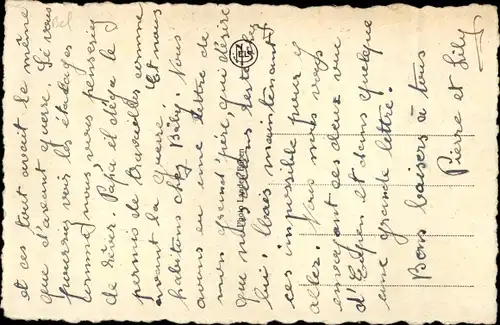 et ces tout avant le même
que d'avant guerre. Si vous
pourriez voir les étalages
comme nous, vous penseriez
de rêver. Papa il a déja le
permis de travailler comme
avant la guerre. Et nous
habitons chez Béby. Nous
avons eu une lettre de
mon grand'père, qui désire
que nous tous
lui. Mais maintenant
ces impossible pour y
aller. Nous nous vous
envoyons ses deux vu
d'Eupen et dans quelque
une grande lettre.
Bons baisers à tous
Pierre et Lily